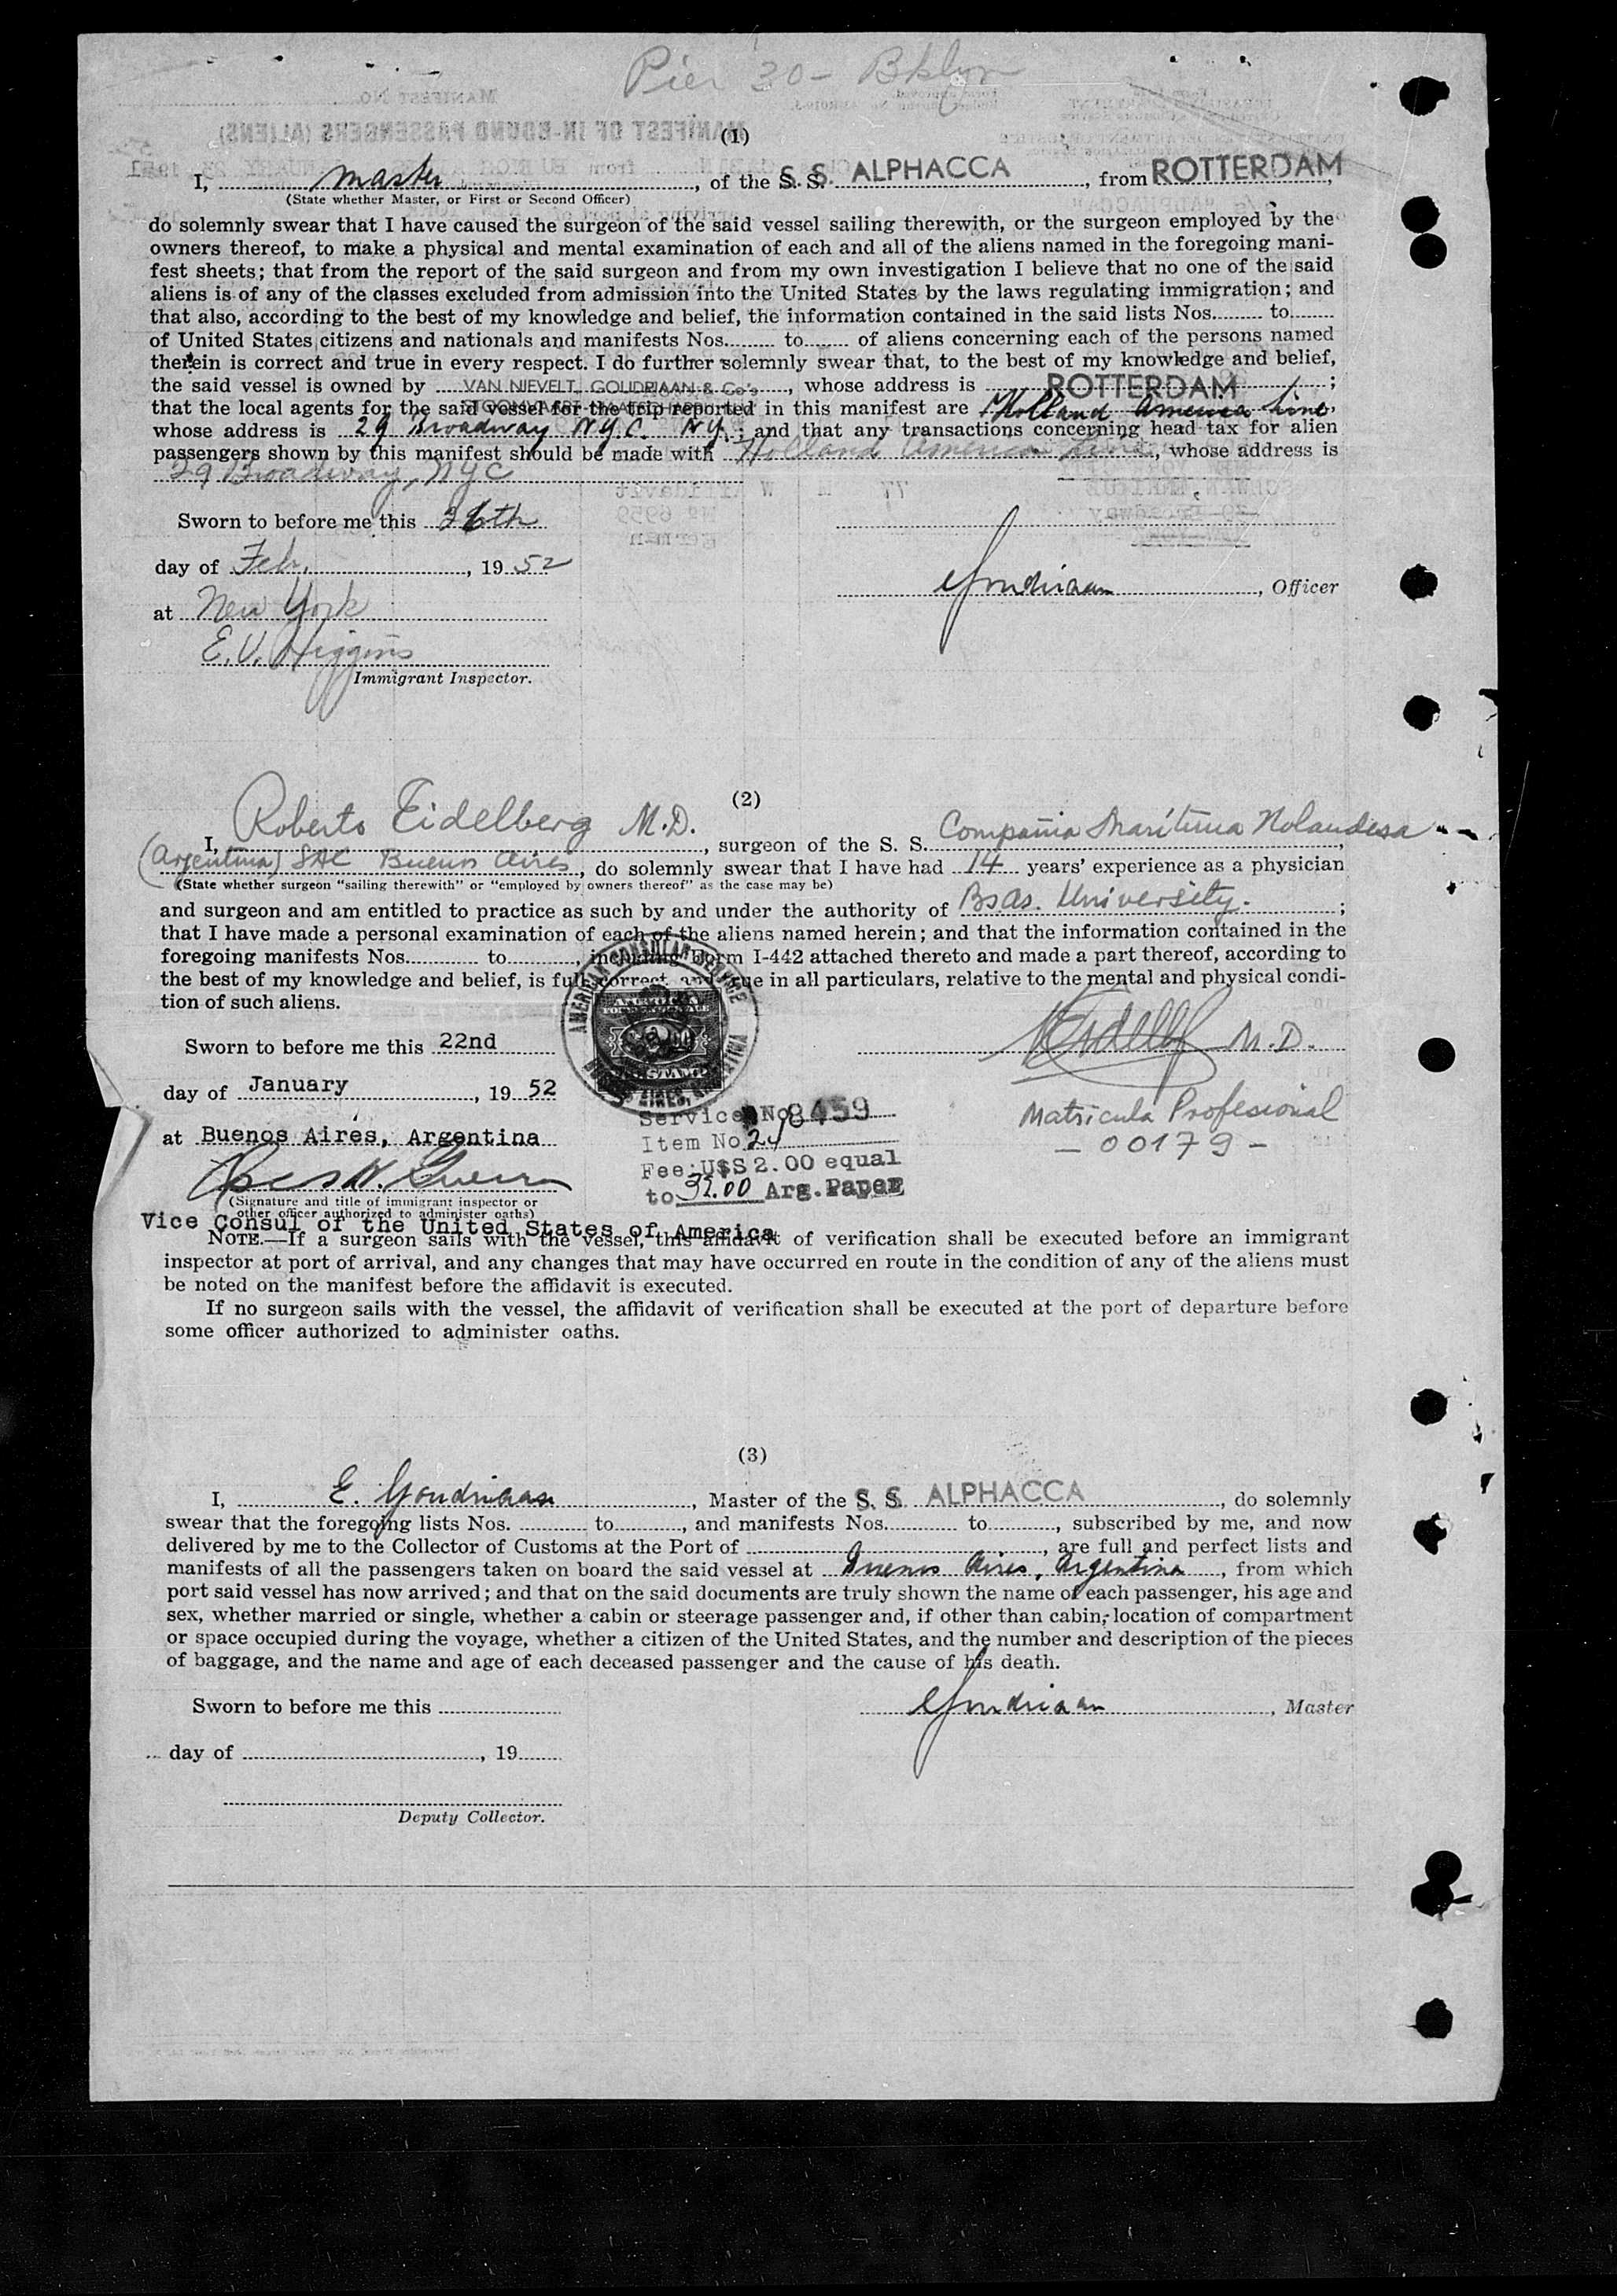 Pier 30 - Bklyn
(1)
I, master, of the S. S. ALPHACCA, from ROTTERDAM,
(State whether Master, or First or Second Officer)
do solemnly swear that I have caused the surgeon of the said vessel sailing therewith, or the surgeon employed by the
owners thereof, to make a physical and mental examination of each and all of the aliens named in the foregoing mani-
fest sheets; that from the report of the said surgeon and from my own investigation I believe that no one of the said
aliens is of any of the classes excluded from admission into the United States by the laws regulating immigration; and
that also, according to the best of my knowledge and belief, the information contained in the said lists Nos. to
of United States citizens and nationals and manifests Nos. to of aliens concerning each of the persons named
therein is correct and true in every respect. I do further solemnly swear that, to the best of my knowledge and belief,
the said vessel is owned by VAN NIEVELT, GOUDRIAAN & Co's, whose address is ROTTERDAM;
STOOMVAART MAATSCHAPPIJ
that the local agents for the said vessel for the trip reported in this manifest are Holland America Line,
whose address is 29 Broadway N.Y.C. N.Y.; and that any transactions concerning head tax for alien
passengers shown by this manifest should be made with Holland America Line, whose address is
29 Broadway, NYC
Sworn to before me this 26th
day of Feb., 1952
at New York
Goudriaan, Officer
E. V. Higgins
Immigrant Inspector.
(2)
I, Roberto Eidelberg M.D., surgeon of the S. S. Compañia Maritima Holandesa,
(Argentina) SAC Buenos Aires, do solemnly swear that I have had 14 years' experience as a physician
(State whether surgeon "sailing therewith" or "employed by owners thereof" as the case may be)
and surgeon and am entitled to practice as such by and under the authority of Bs.As. University.;
that I have made a personal examination of each of the aliens named herein; and that the information contained in the
foregoing manifests Nos. to, including Form I-442 attached thereto and made a part thereof, according to
the best of my knowledge and belief, is full, correct, and true in all particulars, relative to the mental and physical condi-
tion of such aliens.
AMERICAN CONSULAR SERVICE
BUENOS AIRES, ARGENTINA
Sworn to before me this 22nd
M.D.
day of January, 1952
Service No. 8459
Matricula Profesional
at Buenos Aires, Argentina
Item No. 24
- 00179 -
Fee: U$S 2.00 equal
to 32.00 Arg. Paper
(Signature and title of immigrant inspector or
other officer authorized to administer oaths)
Vice Consul of the United States of America
NOTE.—If a surgeon sails with the vessel, this affidavit of verification shall be executed before an immigrant
inspector at port of arrival, and any changes that may have occurred en route in the condition of any of the aliens must
be noted on the manifest before the affidavit is executed.
If no surgeon sails with the vessel, the affidavit of verification shall be executed at the port of departure before
some officer authorized to administer oaths.
(3)
I, E. Goudriaan, Master of the S. S. ALPHACCA, do solemnly
swear that the foregoing lists Nos. to, and manifests Nos. to, subscribed by me, and now
delivered by me to the Collector of Customs at the Port of, are full and perfect lists and
manifests of all the passengers taken on board the said vessel at Buenos Aires, Argentina, from which
port said vessel has now arrived; and that on the said documents are truly shown the name of each passenger, his age and
sex, whether married or single, whether a cabin or steerage passenger and, if other than cabin, location of compartment
or space occupied during the voyage, whether a citizen of the United States, and the number and description of the pieces
of baggage, and the name and age of each deceased passenger and the cause of his death.
Sworn to before me this
Goudriaan, Master
day of, 19
Deputy Collector.